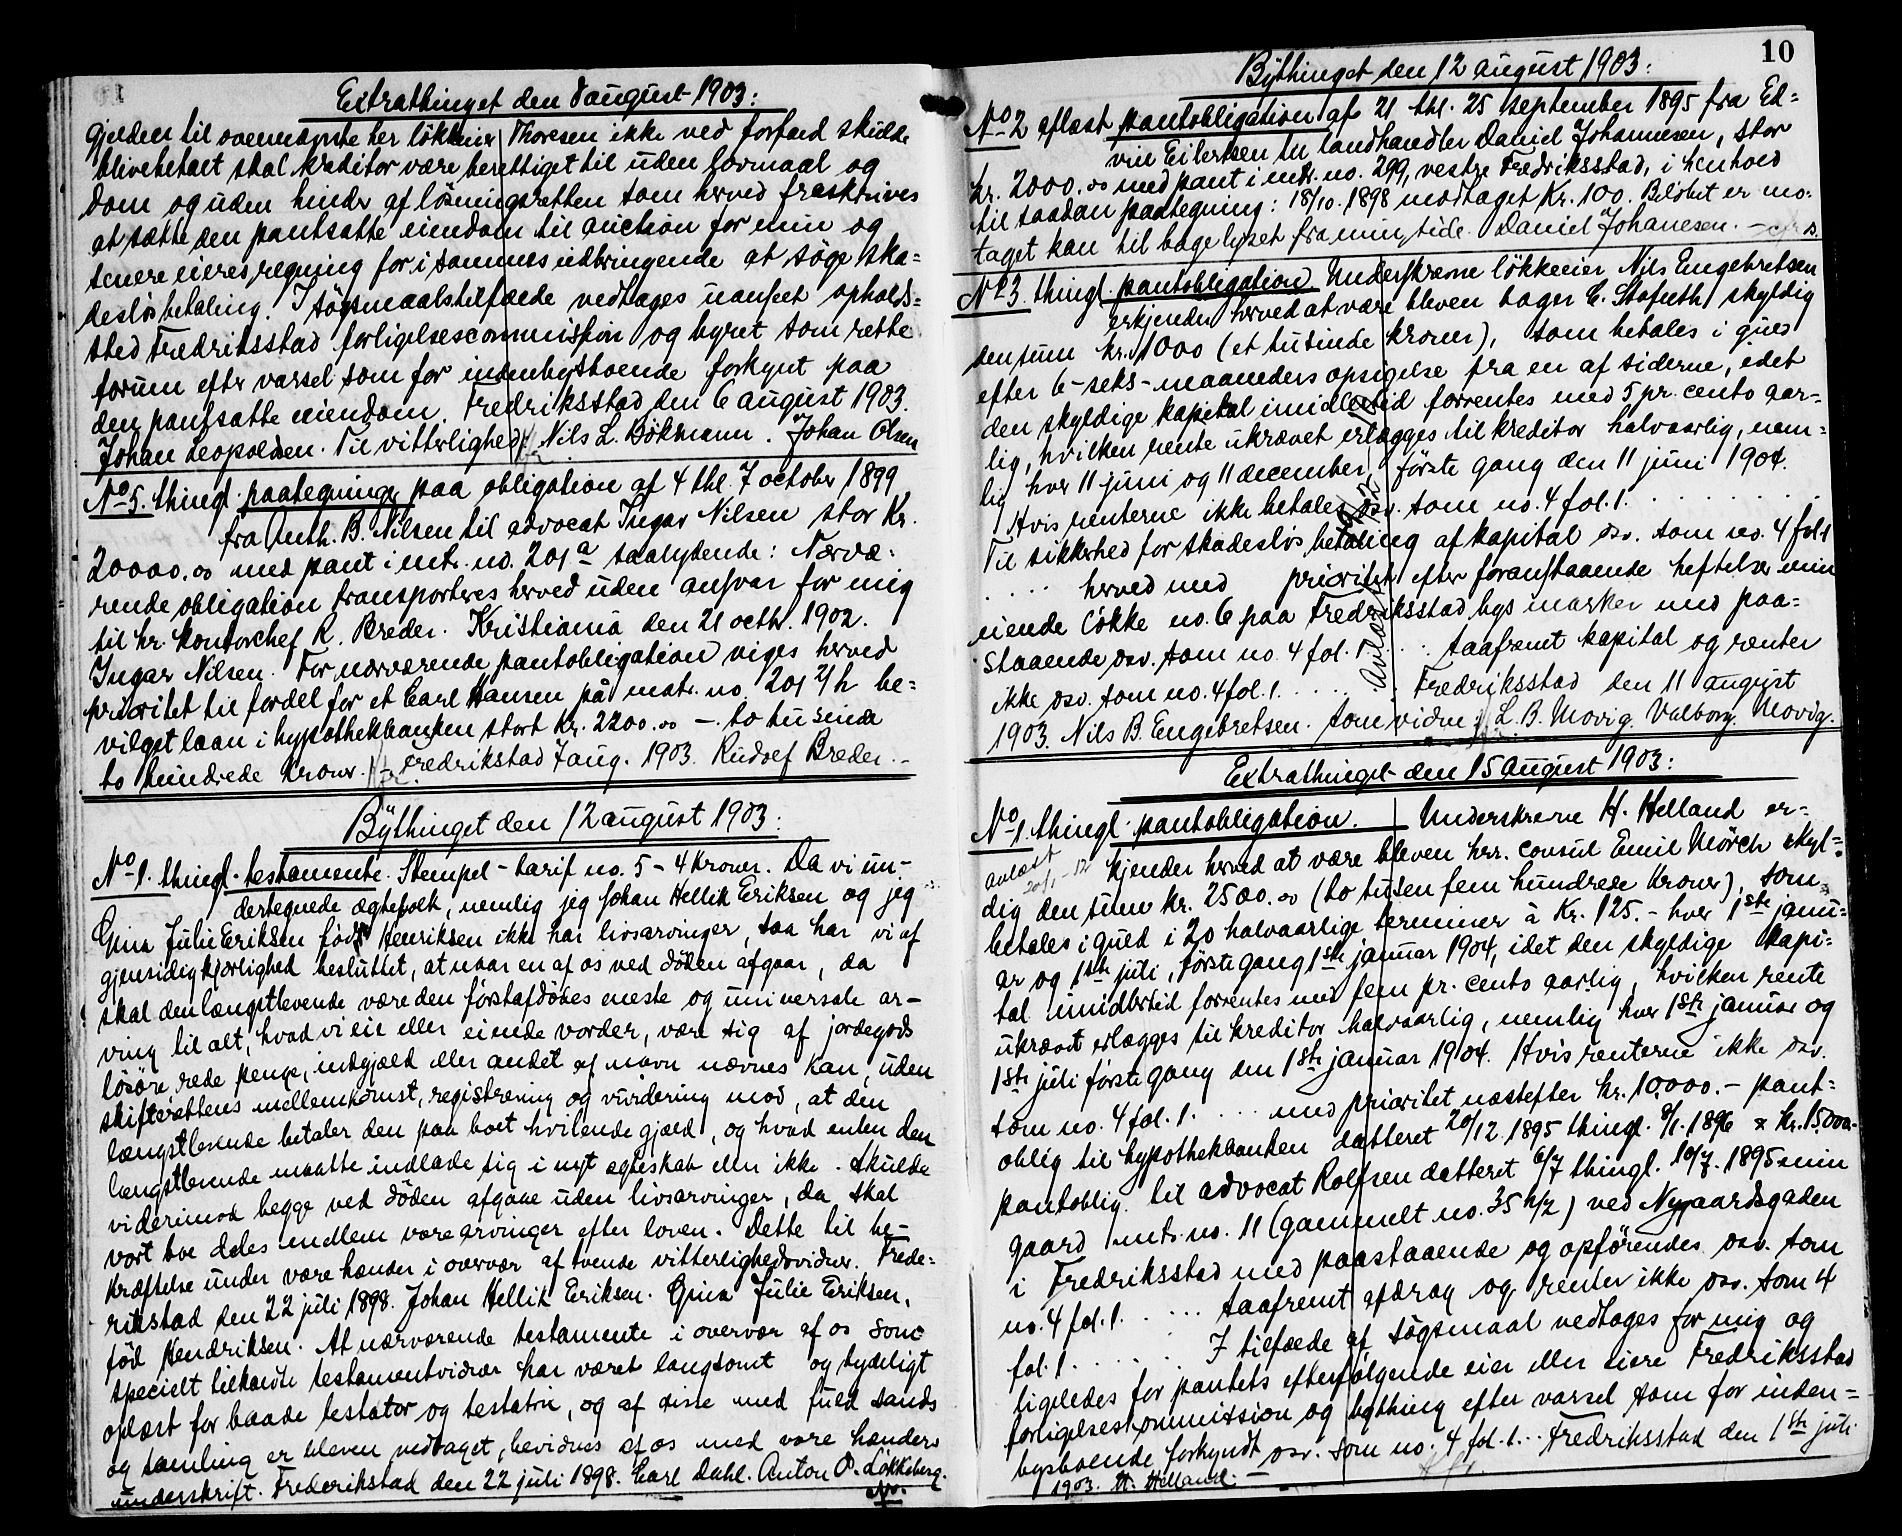 Extrathinget den 8 august 1903:
gjælden til ovennævnte hr løkkeeier Thoresen ikke ved forfald skulde
blive betalt skal kreditor være berettiget til uden lovmaal og
dom og uden hinder af løsningsretten som herved fraskrives
at sætte den pantsatte eiendom til auction for min og
senere eieres regning for i sammes udbringende at søge ska=
desløs betaling. I søgsmaalstilfælde vedtages uanseet opholds=
sted Fredriksstad forligelsescommission og byret som rette
forum efter varsel som for indenbysboende forkynt paa
den pantsatte eiendom. Fredriksstad den 6 august 1903.
Johan Leopoldsen. Til vitterlighed: Nils L. Bökmann. Johan Olsen
No 5. thingl. paategninger paa obligation af 4 thl. 7 october 1899
fra Anth. B. Nilsen til advocat Ingar Nilsen stor Kr.
20000.00 med pant i mtr. no. 201a saalydende: Nærvæ=
rende obligation transporteres herved uden ansvar for mig
til hr. kontorchef R. Breder. Kristiania den 21 octbr. 1902.
Ingar Nilsen. For nærværende pantobligation viges herved
prioritet til fordel for et Carl Hansen på matr. no. 201 2/h be=
vilget laan i hypothekbanken stort Kr. 2200.00 – to tusinde
to hundrede kroner. Fredrikstad 7 aug. 1903. Rudolf Breder.–
Bythinget den 12 august 1903:
No 1. thingl. testamente. Stempel-tarif no. 5 – 4 kroner. Da vi un-
dertegnede ægtefolk, nemlig jeg Johan Hellik Eriksen og jeg
Gina Julie Eriksen født Henriksen ikke har livsarvinger, saa har vi af
gjensidig kjærlighed besluttet, at naar en af os ved døden afgaar, da
skal den længstlevende være den førstafdødes eneste og universale ar-
ving til alt, hvad vi eie eller eiende vorder, være sig af jordegods
løsøre, rede penge, indgjæld eller andet af navn nævnes kan, uden
skifterettens mellemkomst, registrering og vurdering mod, at den
længstlevende betaler den paa boet hvilende gjæld, og hvad enten den
længstlevende maatte indlade sig i nyt ægteskab eller ikke. Skulde
viderimod begge ved døden afgaae uden livsarvinger, da skal
vort bo deles mellem vore arvinger efter loven. Dette til be-
kræftelse under vore hænder i overvær af tvende vitterlighedsvidner. Frede=
rikstad den 22 juli 1898. Johan Hellik Eriksen. Gina Julie Eriksen,
fød Hendriksen. At nærværende testamente i overvær af os som
specielt tilkaldte testamentvidner har været langsomt og tydeligt
oplæst for baade testator og testatrix, og af disse med fuld sands
og samling er bleven vedtaget, bevidnes af os med vore hænders
underskrift. Frederikstad den 22 juli 1898. Carl Dahl. Anton P. Løkkeberg.
No.
10
Bythinget den 12 august 1903:
No 2 aflæst pantobligation af 21 thl. 25 september 1895 fra Ed=
vin Eilertsen til landhandler Daniel Johannesen, stor
kr. 2000.00 med pant i mtr. no. 299, vestre Fredriksstad, i henhold
til saadan paategning: 18/10. 1898 modtaget Kr. 100. Beløbet er mo-
taget kan tilbagelyset fra min side. Daniel Johanesen.
No 3. thingl. pantobligation Underskrevne løkkeeier Nils Engebretsen
erkjender herved at være bleven bager C. Stafseth skyldig
den sum kr. 1000 (et tusinde kroner), som betales i guld
efter 6-seks-maaneders opsigelse fra en af siderne, idet
den skyldige kapital imidlertid forrentes med 5 pr. cento aar=
lig, hvilken rente ukrævet erlægges til kreditor halvaarlig, nem=
lig hver 11 juni og 11 december, første gang den 11 juni 1904.
Hvis renterne ikke betales osv. som no. 4 fol. 1. . . . . . . .
Til sikkerhed for skadesløs betaling af kapital osv. som no. 4 fol. 1
. . . . . herved med prioritet efter foranstaaende heftelser min
eiende løkke no. 6 paa Fredriksstad bys marker med paa=
staaende osv. som no. 4 fol. 1 . . . . saafremt kapital og renter
ikke osv. som no. 4 fol. 1. . . . . . . Fredriksstad den 11 august
1903. Nils B. Engebretsen. Som vidne: L. B. Movig. Valborg Movig.
Extrathinget den 15 august 1903:
No 1. thingl. pantobligation. Underskrevne H. Helland er-
avlæst kjender herved at være bleven hrr. consul Emil Mörch skyl=
dig den sum kr. 2500.00 (to tusen fem hundrede kroner), som
betales i guld i 20 halvaarlige terminer à Kr. 125.– hver 1ste janu=
ar og 1ste juli, første gang 1ste januar 1904, idet den skyldige kapi=
tal imidlertid forrentes med fem pr. cento aarlig, hvilken rente
ukrævet erlægges til kreditor halvaarlig, nemlig hver 1ste januar og
1ste juli første gang den 1ste januar 1904. Hvis renterne ikke osv.
som no. 4 fol. 1. . . . med prioritet næstefter kr. 10,000.– pant=
oblig til hypothekbanken datteret 20/12 1895 thingl. 8/1. 1896 & kr. 15,000.-
pantoblig. til advocat Rolfsen datteret 6/7 thingl. 10/7. 1895 min
gaard mtr. no. 11 (gammelt no. 35 h/2) ved Nygaardsgaden
i Fredriksstad med paastaaende og opførendes osv. som
no. 4 fol. 1. . . . . saafremt afdrag og renter ikke osv. som 4
fol. 1. . . . . . . I tilfælde af søgsmaal vedtages for mig og
ligeledes for pantets efterfølgende eier eller eiere Fredriksstad
forligelseskommission og bything efter varsel som for inden=
bysboende forkyndt osv. som no. 4 fol. 1... Fredriksstad den 1ste juli
1903. H. Helland.